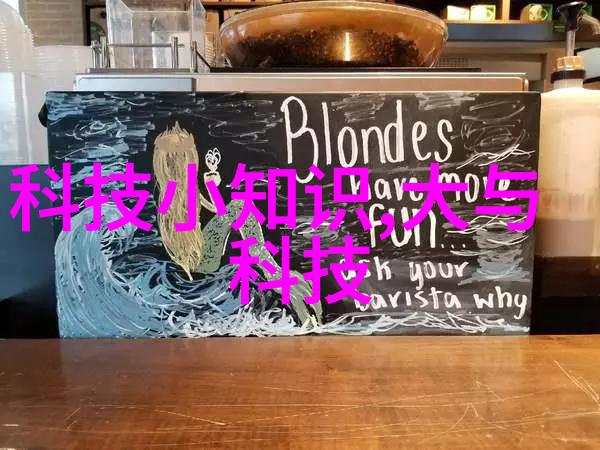 Blondes
have more
fun...
ask your
barista why
科技小知识,大与
科技